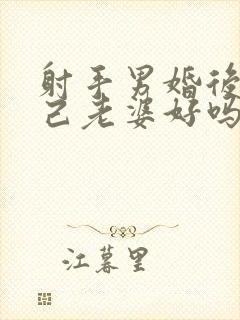 射手男婚後
己老婆好吗
江暮里